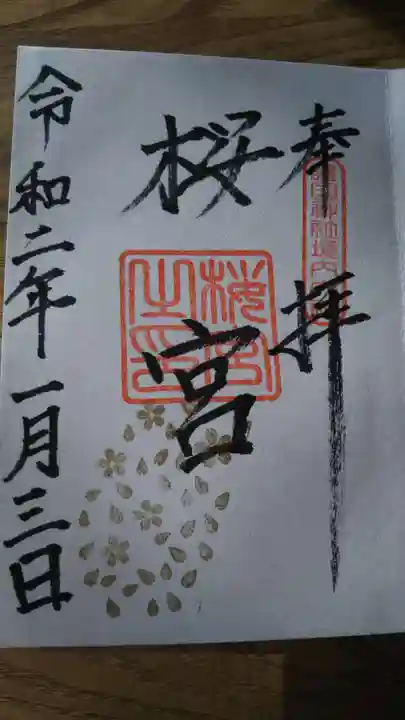 奉拝
桜宮
桜宮之印
令和二年一月三日